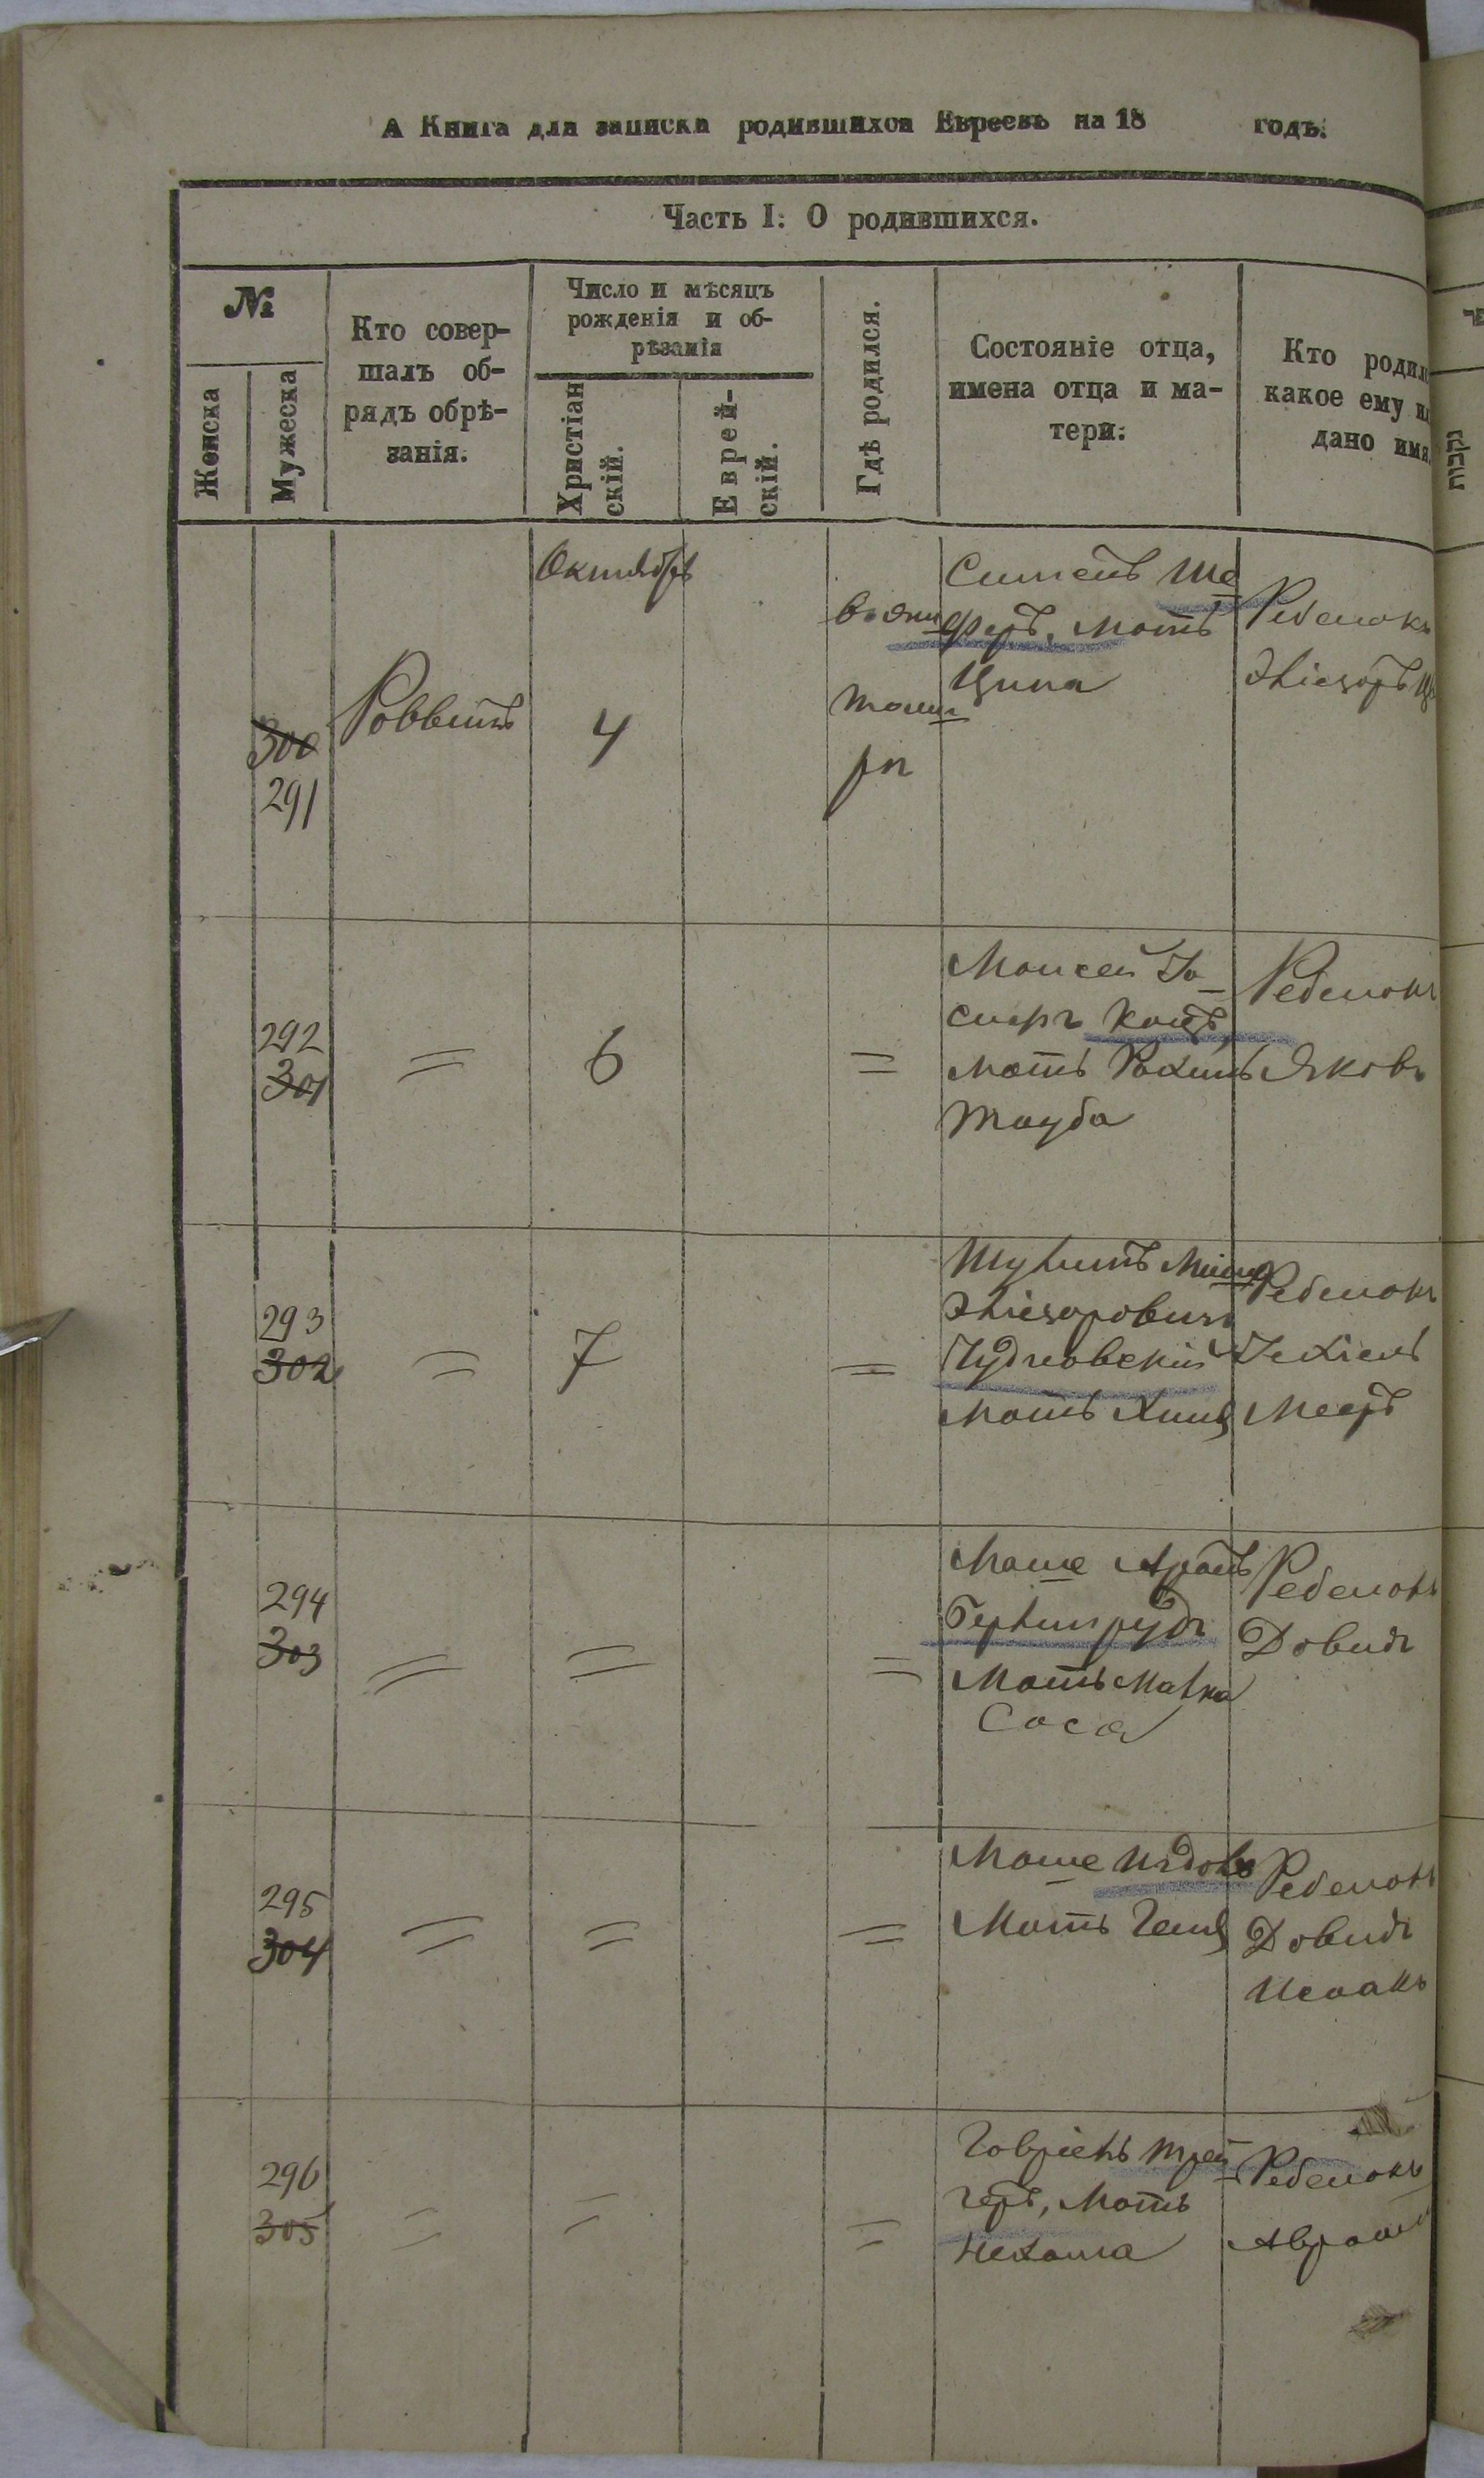 А Книга для записки родившихся Евреевъ на 18 годъ.
Часть I: О родившихся.
№
Женска
Мужеска
Кто совер-
шалъ об-
рядъ обрѣ-
занія.
Число и мѣсяцъ
рожденія и об-
рѣзанія
Христіан
скій.
Еврей-
скій.
Гдѣ родился.
Состояніе отца,
имена отца и ма-
тери.
Кто родил
какое ему и
дано имя
נקבות
300
291
Октябрь
4
Ше
феръ, мать
Ципа
Ребенокъ
Эліезаръ
292
301
=
6
=
Моисей
мать
Тауба
Ребенокъ
Яковъ
293
302
=
7
=
Эліезаровичъ
Чудновскій
мать Хина
Ребенокъ
Іехіель
Мееръ
294
303
=
=
=
Моше
мать Малка
Соса
Ребенокъ
Довидъ
295
304
=
=
=
Моше
Мать Геня
Ребенокъ
Довидъ
Исаакъ
296
305
=
=
=
Гавріель Трей
геръ, Мать
Нехама
Ребенокъ
Аврамъ